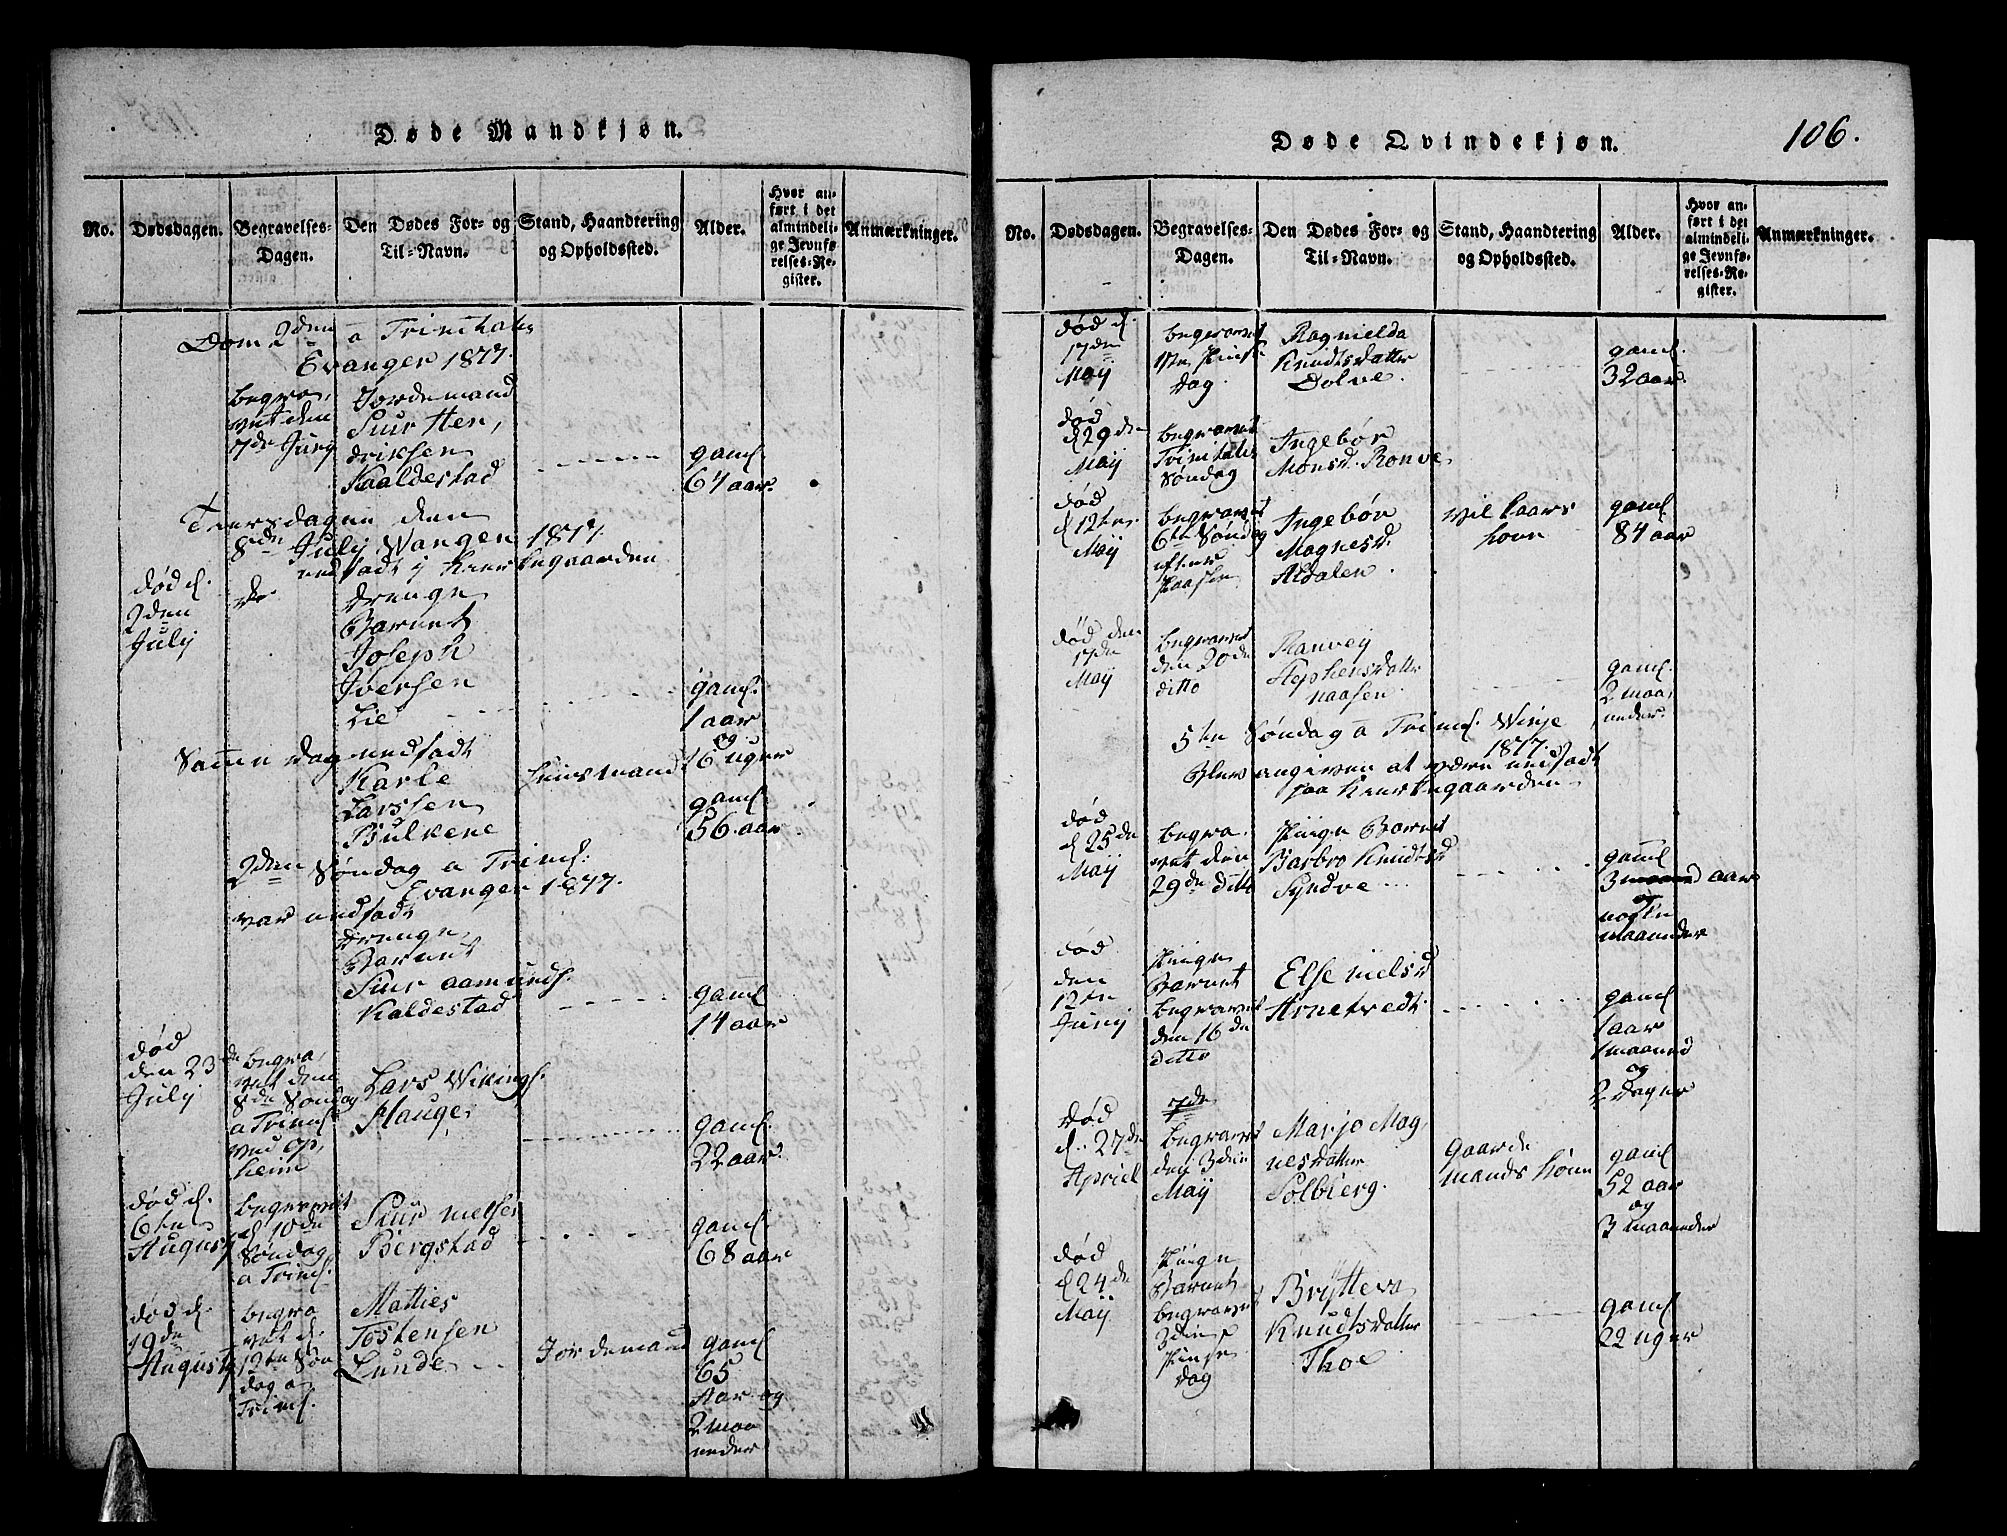 Døde Mandkjøn.
No.
Dødsdagen.
Begravelses-
Dagen.
Den Dødes For- og
Til-Navn.
Stand, Haandtering
og Opholdssted.
Alder.
Hvor an-
ført i det
almindeli-
ge Jevnfø-
relses-Re-
gister.
Anmærkninger.
Dom 2den a Trinitatis
Evanger 1817.
begra-
vet den
7de July
Jordemand
Siur Hen-
driksen
Kaaldestad
gaml.
64 aar.
Tiersdagen den
8de July Wangen 1817.
nedsadt i Kierkegaarden
død d.
2den
July
do
drenge
Barnet
Joseph
Iversen
Lie
gaml.
1 aar
og
16 uger
Samme dag nedsadt
Karle
Larssen
Bulkene
huusmand
gaml.
56 aar
2den Søndag a Trinit.
Evanger 1817.
var nedsadt
drenge
Barnet
Siur Aamunds.
Kaldestad
gaml
14 aar
død
den 23de
July
begra-
vet den
8de Søndag
a Trinit.
ved Op-
heim
Lars Wikings.
Hauge
gaml.
22 aar.
død d.
6te
August
begravet
d 10de
Søndag
a Trinit.
Siur Nielsen
Bergstad
gaml
68 aar
død d.
19de
Augusty
begra
vet d.
12te Søn
dag a
Trinit.
Matties
Tostensen
Lunde
Jordemand
gaml
65
Aar og
2 maa
neder
106.
Døde Qvindekjøn.
No.
Dødsdagen.
Begravelses-
Dagen.
Den Dødes For- og
Til-Navn.
Stand, Haandtering
og Opholdssted.
Alder.
Hvor an-
ført i det
almindeli-
ge Jevnfø-
relses-Re-
gister.
Anmærkninger.
død d.
17de
Maij
begravet
1ste Pinse
dag
Ragnielda
Knudtsdatter
Dolve.
gaml.
32 aar.
død
d 29de
Maij
begravet
Trinitatis
Søndag
Ingebør
Monsd. Ronve
død
d 12te
Maij
begravet
6te Søndag
efter
Paaske
Ingebør
Magnesd.
Aldalen.
vilkaars
kone
gaml.
84 aar
død den
17de
Maij
begravet
den 20de
ditto
Ranvey
Stephensdatter
Naasen.
gaml.
2 maa
neder.
5te Søndag a Trinit. Winje
1817.
Blev angiven at være nedsadt
paa Kierkegaarden
død
d 25de
Maij
begra-
vet den
29de ditto
Pige Barnet
Barbro Knudtsd
Syndve
gaml
3 aar
og
maaneder
død
den
12te
Junij
Pige
Barnet
begravet
den 16de
ditto
Else Nielsd
Arnetvedt.
gaml
1 aar
1 maaned
og
2 dager
død
d. 27de
Apriel
7de
begravet
den 3die
Maij
Marjo Mag
nesdatter
Solbierg.
Gaarde
mands kone
gaml
52 aar
og
3 maaneder
død
d 24de
Maij
Pige
Barnet
begravet
3die
Pinse
dag
Brytteva
Knudtsdatter
Thoe
gaml
22 uger